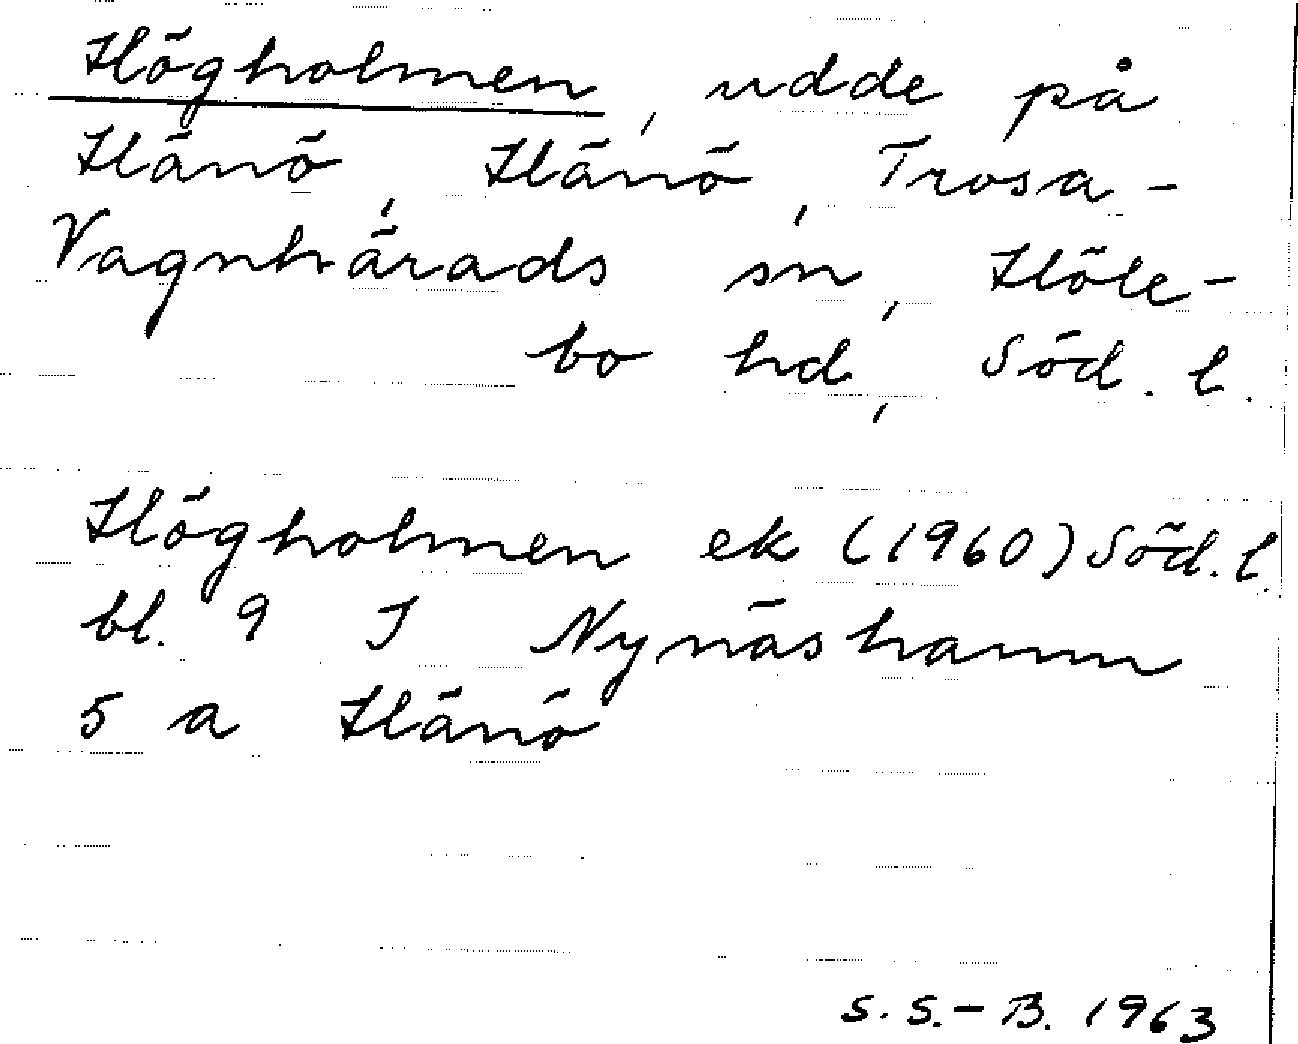 Högholmen, udde på
Hånö, Hånö, Trosa-
Vagnhärads sn, Höle-
bo hd, Söd. l.
Högholmen ek (1960) Söd. l.
bl. 9 I Nynäshamn
5 a Hånö
S. S.-B. 1963